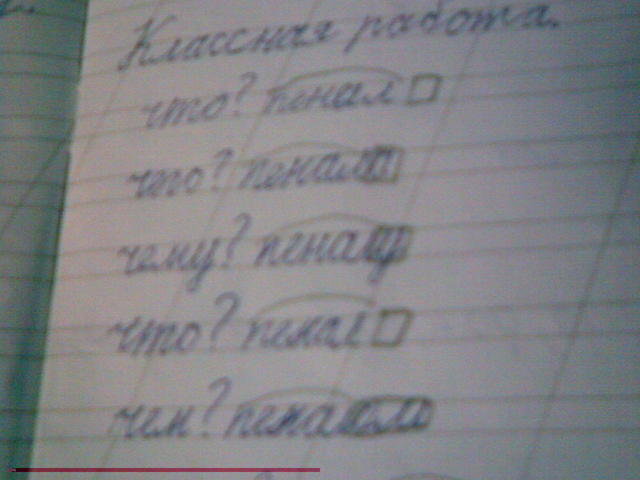 Классная работа.
что? пенал
чего? пенала
чему? пеналу
что? пенал
чем? пеналом